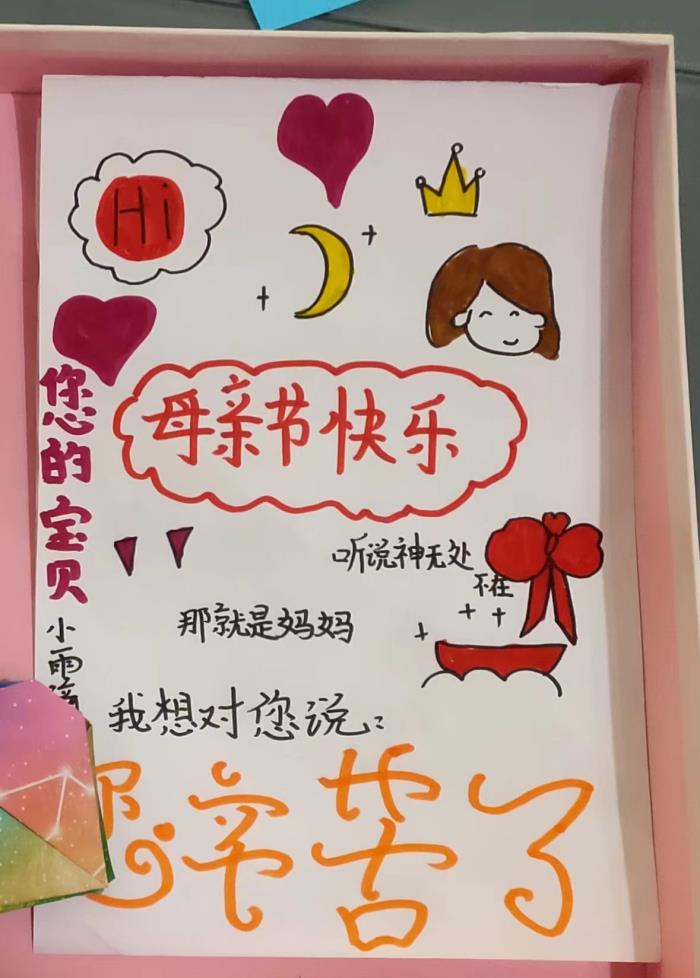 Hi
母亲节快乐
您的宝贝
小雨
听说神无处
不在
那就是妈妈
我想对您说:
您辛苦了